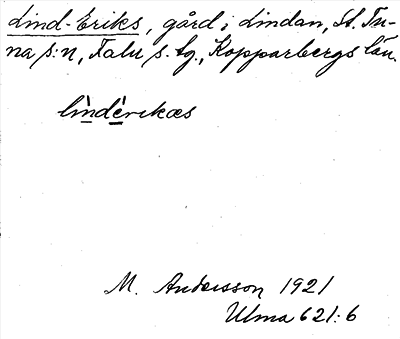 Lind-Eriks, gård i Lindan, St. Tu-
na s:n, Falu s. tg., Kopparbergs län.
lìndèrikæs
M. Andersson 1921
Ulma 621:6